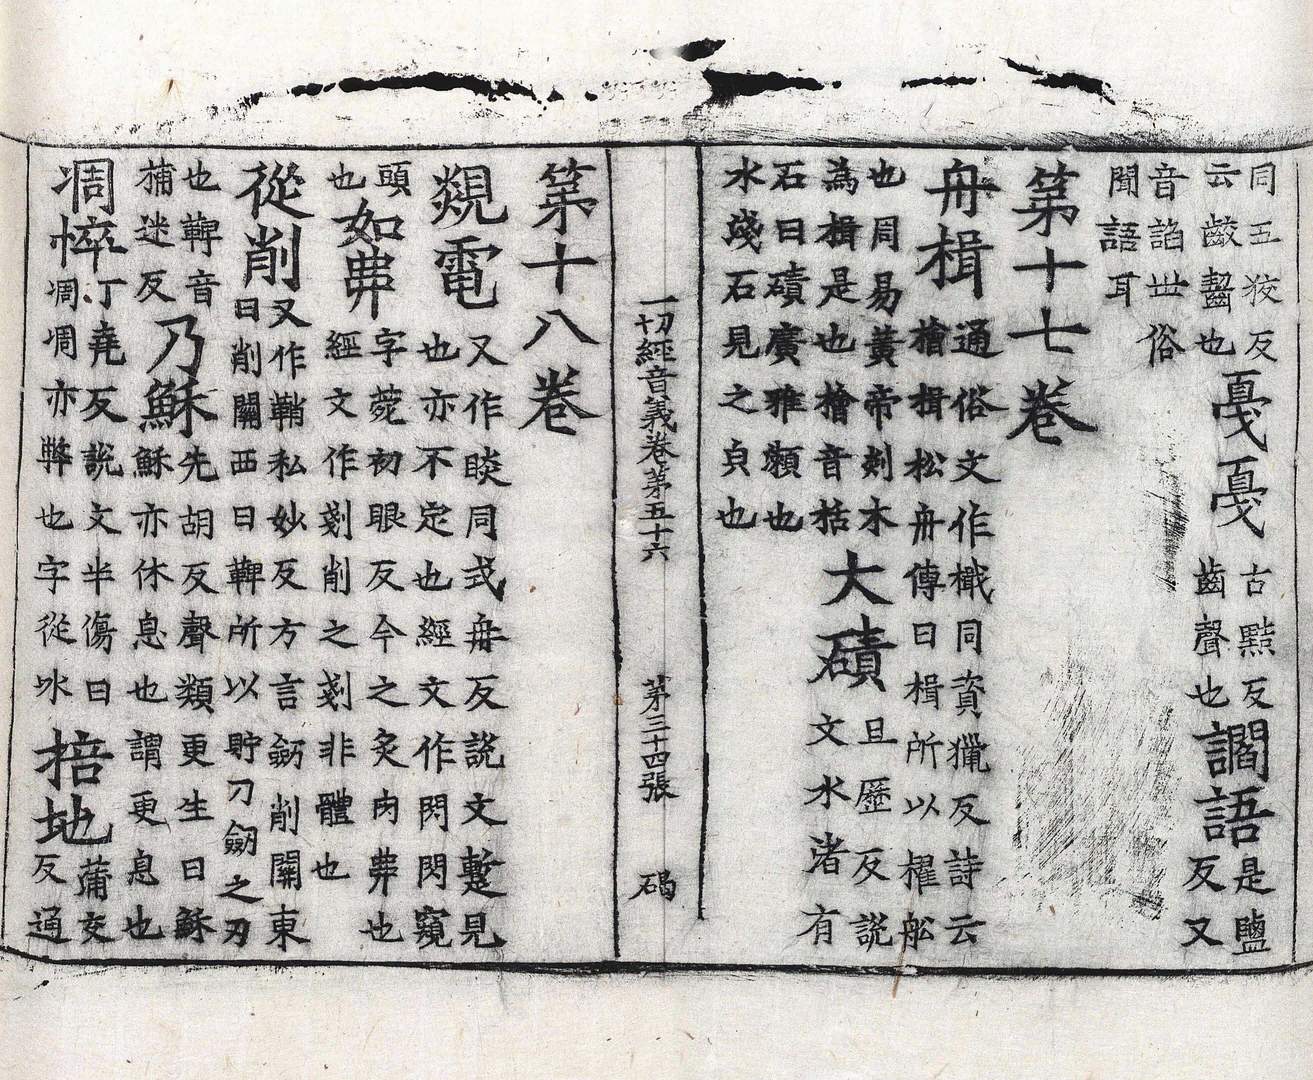 同五狡反云齩齧也戞戞古黠反齒聲也讇語是鹽反又
音諂世俗聞語耳
第十七卷
舟楫通俗文作檝同資獵反詩云檜楫松舟傳曰楫所以櫂舩
也周易黃帝剡木為楫是也檜音栝大磧且歷反說文水渚有
石曰磧廣雅瀨也水淺石見之皃也
一切經音義卷第五十六 第三十四張 碣
第十八卷
覢電又作睒同式冉反說文蹔見也亦不定也經文作閃閃窺
頭也如丳字苑初眼反今之炙肉丳也經文作剗削之剗非體也
從削又作鞘私妙反方言劒削關東曰削關西曰鞞所以貯刀劒之刃
也鞞音補迷反乃穌先胡反聲類更生曰穌穌亦休息也謂更息也
凋悴丁堯反說文半傷曰凋凋亦弊也字從冰掊地蒲交反通